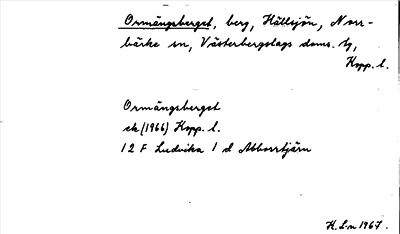 Ormängsberget, berg, Hällsjön, Norr-
bärke sn, Västerbergslags doms. tg,
Kopp. l.
Ormängsberget
ek (1966) Kopp. l.
12 F Ludvika 1 d Abborrtjärn
K. L:n 1967.